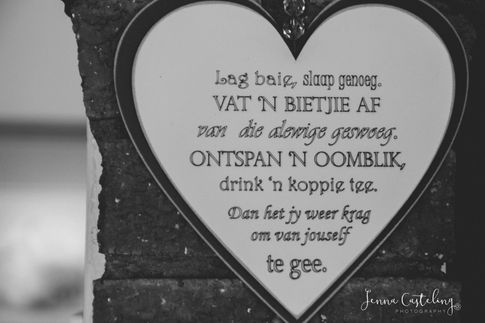 Lag baie, slaap genoeg.
VAT 'N BIETJIE AF
van die alewige geswoeg.
ONTSPAN 'N OOMBLIK,
drink 'n koppie tee.
Dan het jy weer krag
om van jouself
te gee.
Jenna Casteling
PHOTOGRAPHY